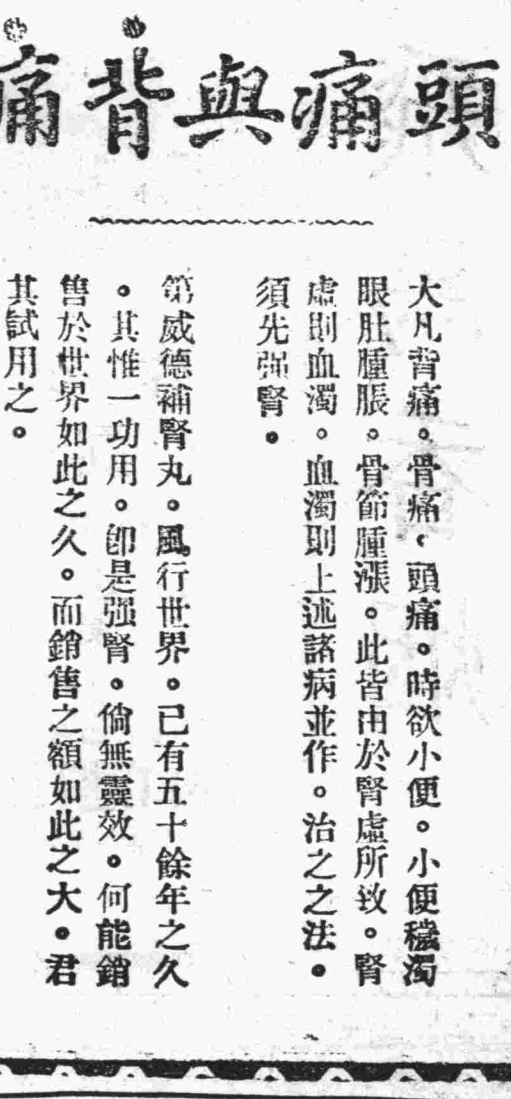 頭痛與背痛
大凡背痛。骨痛、頭痛。時欲小便。小便穢濁
眼肚腫脹。骨節腫漲。此皆由於腎虛所致。腎
虛則血濁。血濁則上述諸病並作。治之之法。
須先强腎。
第威德補腎丸。風行世界。已有五十餘年之久
。其惟一功用。卽是强腎。倘無靈效。何能銷
售於世界如此之久。而銷售之額如此之大。君
其試用之。